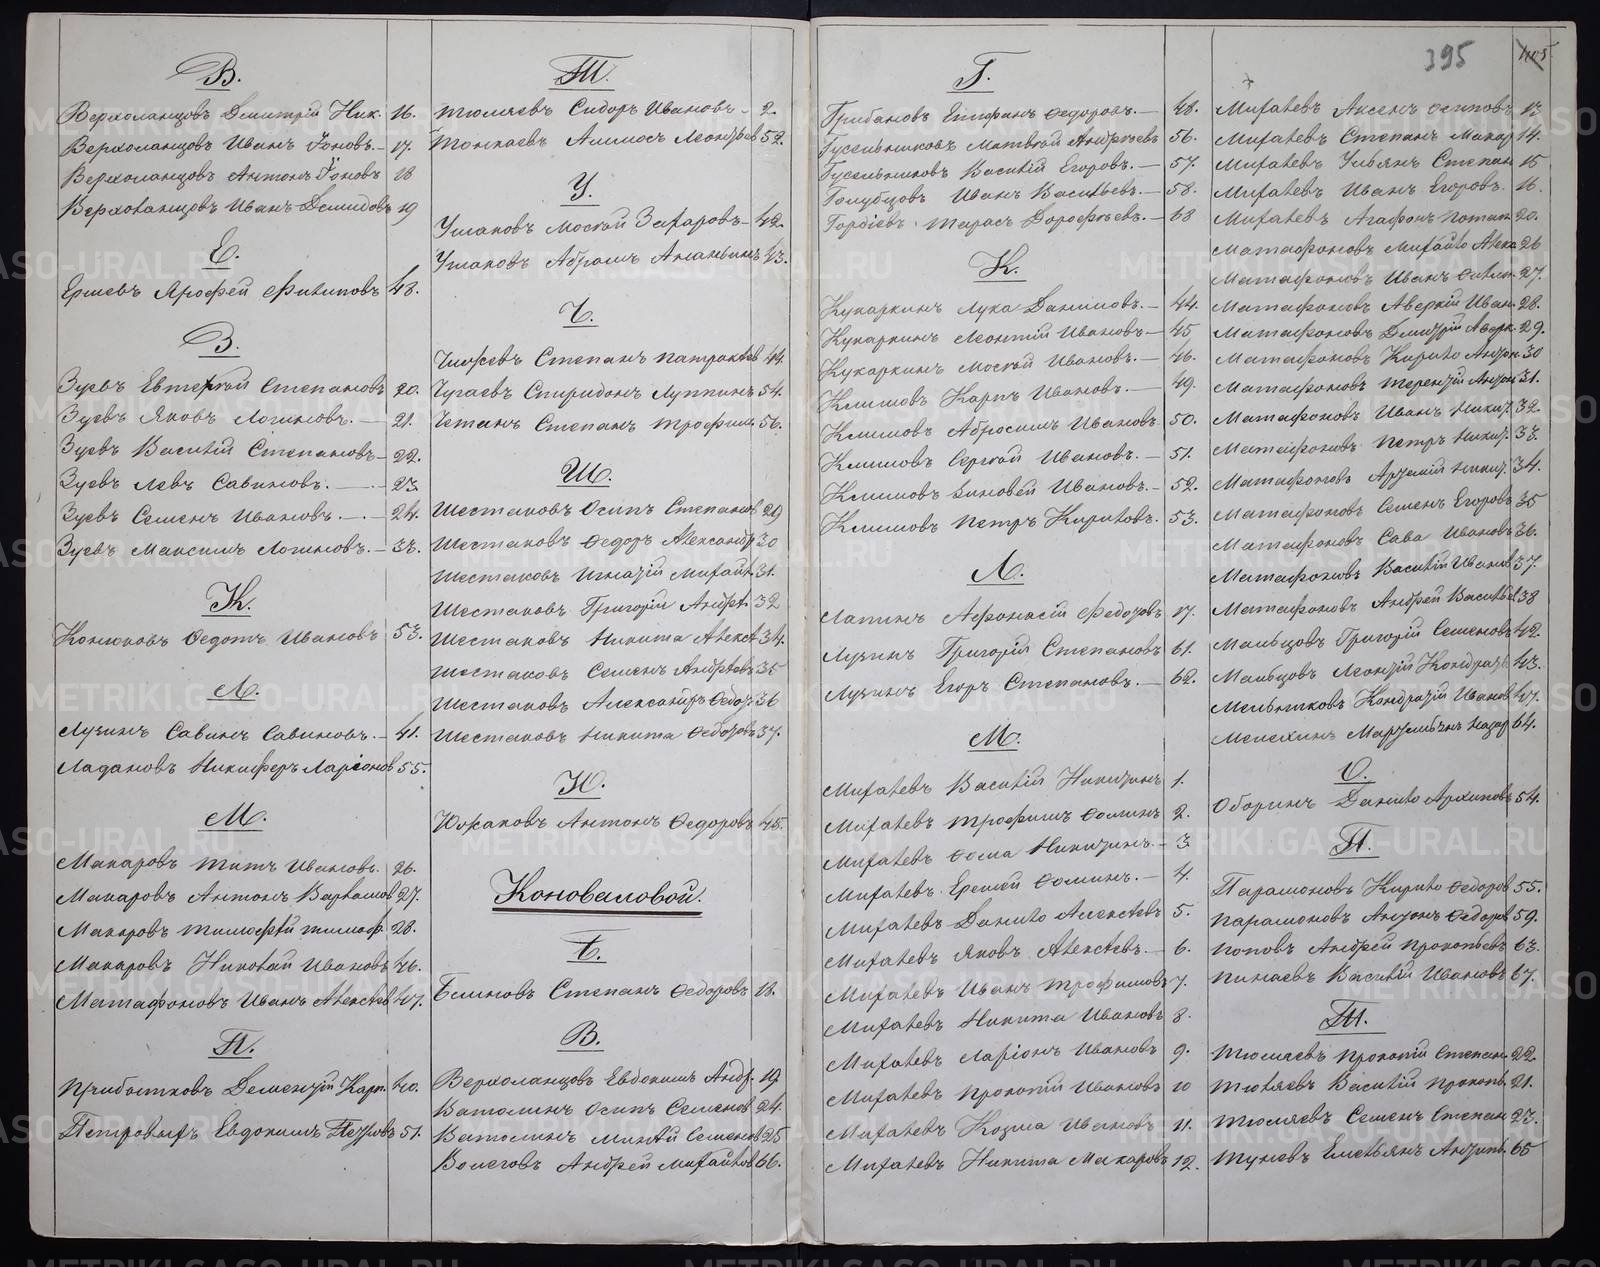 В.
Верхоланцовъ Дмитрій Ник. 16.
Верхоланцовъ Иванъ Іоновъ. — 17.
Верхоланцовъ Антонъ Іоновъ 18
Верхоланцовъ Иванъ Демидовъ 19
Е.
Ершевъ Ярофей Филиповъ 48.
З.
Зуевъ Евтегней Степановъ 20.
Зуевъ Яковъ Логиновъ. — 21.
Зуевъ Василій Степановъ — 22.
Зуевъ Левъ Савиновъ. — 23.
Зуевъ Семенъ Ивановъ. — 24.
Зуевъ Максимъ Логиновъ. — 33.
К.
Конюковъ Ѳедотъ Ивановъ 53.
Л.
Лузинъ Савинъ Савиновъ. — 41.
Ладановъ Никифоръ Ларіонов 55.
М.
Макаровъ Титъ Ивановъ. 26.
Макаровъ Антонъ Варламов 27.
Макаровъ Тимофѣй Тимоф. 28.
Макаровъ Николай Ивановъ 46.
Матафоновъ Иванъ Алексѣев 47.
П.
Прибытковъ Дементій Карп. 40.
Петровыхъ Евдокимъ Петровъ 51.
Т.
Тюляевъ Сидоръ Ивановъ — 2.
Тонкаевъ Амплосъ Леонтьев 52.
У.
Ушаковъ Мосѣй Захаровъ — 42.
Ушаковъ Абрамъ Ананьинъ 43.
Ч.
Чижевъ Степанъ Патракѣев 44.
Чугаевъ Спиридонъ Луппинъ 54.
Четинъ Степанъ Трофим. 56.
Ш.
Шестаковъ Осипъ Степанов 29
Шестаковъ Ѳедоръ Александр 30
Шестаковъ Игнатій Михайл. 31.
Шестаковъ Григорій Андрѣ. 32
Шестаковъ Никита Алексѣ. 34.
Шестаковъ Семенъ Андрѣевъ 35
Шестаковъ Александръ Ѳедор. 36
Шестаковъ Никита Ѳедоровъ 37.
Ю.
Южаковъ Антонъ Ѳедоровъ 45.
Коноваловой.
Б.
Блиновъ Степанъ Ѳедоровъ 18.
В.
Верхоланцовъ Евдокимъ Андр. 19.
Ватолинъ Осипъ Семенов 24.
Ватолинъ Минѣй Семенов 25
Волеговъ Андрей Михайлов 66.
Г.
Грибановъ Епифанъ Ѳедоровъ. — 48.
Гусельниковъ Матвѣй Андрѣевъ 56.
Гусельниковъ Василій Егоровъ. — 57.
Голубцовъ Иванъ Васильевъ. — 58.
Гордѣевъ Тарасъ Дорофѣевъ. — 68
К.
Кукаркинъ Лука Даниловъ. — 44.
Кукаркинъ Леонтій Ивановъ — 45
Кукаркинъ Мосѣй Ивановъ. — 46.
Климовъ Карпъ Ивановъ. — 49.
Климовъ Абросимъ Ивановъ 50.
Климовъ Сергѣй Ивановъ. — 51.
Климовъ Зиновей Ивановъ. — 52.
Климовъ Петръ Кириловъ. 53.
Л.
Лапинъ Афонасій Федоровъ 17.
Лузинъ Григорій Степановъ 61.
Лузинъ Егоръ Степановъ. — 62.
М.
Михалевъ Василій Никитинъ 1.
Михалевъ Трофимъ Ѳоминъ 2.
Михалевъ Ѳома Никитинъ. — 3
Михалевъ Еремѣй Ѳоминъ. — 4.
Михалевъ Данило Алексѣевъ 5.
Михалевъ Яковъ Алексѣевъ. — 6.
Михалевъ Иванъ Трофимовъ 7.
Михалевъ Никита Ивановъ 8.
Михалевъ Ларіонъ Ивановъ 9.
Михалевъ Прокопій Ивановъ 10
Михалевъ Козма Ивановъ 11.
Михалевъ Никита Макаровъ 12.
395
Михалевъ Аксенъ Осиповъ 13
Михалевъ Степанъ Макар 14.
Михалевъ Ульянъ Степан 15
Михалевъ Иванъ Егоровъ. 16.
Михалевъ Агафонъ Потап. 20.
Матафоновъ Михайло Алекс 26
Матафоновъ Иванъ Филип. 27.
Матафоновъ Аверкій Иван. 28.
Матафоновъ Дмитрій Аверк. 29.
Матафоновъ Кирило Антон 30
Матафоновъ Терентій Антон 31.
Матафоновъ Иванъ Никит. 32.
Матафоновъ Петръ Никит. 33.
Матафоновъ Артемій Никит. 34.
Матафоновъ Семенъ Егоровъ 35
Матафоновъ Сава Ивановъ 36.
Матафоновъ Василій Иванов 37.
Матафоновъ Андрей Васильев 38
Мальцовъ Григорій Семеновъ 42.
Мальцовъ Леонтій Кондрать 43.
Мельниковъ Кондратій Иванов 47.
Мелехинъ Мартемьянъ Назар 64.
О.
Оборинъ Данило Архиповъ 54.
П.
Парамоновъ Кирило Ѳедоров 55.
Парамоновъ Антонъ Ѳедоров 59.
Поповъ Андрей Прокопьевъ 63.
Пинаевъ Василій Ивановъ 67.
Т.
Тюляевъ Прокопій Степан. 22.
Тюляевъ Василій Прокопь. 21.
Тюляевъ Семенъ Степан 23.
Туневъ Емельянъ Андріян. 65